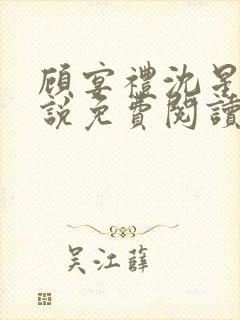 顾宴禮沈星
說免費閱讀
吴江薛